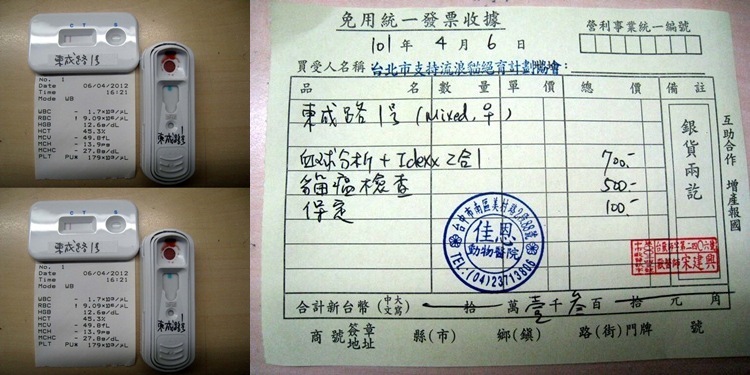 C T S
東成路1号
No. 1
Date 06/04/2012
Time 16:21
Mode WB
WBC - 1.7×10³/μL
RBC ! 9.09×10⁶/μL
HGB 12.6g/dL
HCT 45.3%
MCV 49.8fL
MCH - 13.9pg
MCHC - 27.8g/dL
PLT PU* 179×10³/μL
東成路1
C T S
東成路1号
No. 1
Date 06/04/2012
Time 16:21
Mode WB
WBC - 1.7×10³/μL
RBC ! 9.09×10⁶/μL
HGB 12.6g/dL
HCT 45.3%
MCV 49.8fL
MCH - 13.9pg
MCHC - 27.8g/dL
PLT PU* 179×10³/μL
東成路1
免用統一發票收據
營利事業統一編號
101年4月6日
買受人名稱 台北市支持流浪貓絕育計劃協會：
品名 數量 單價 總價 備註
東成路1号 (Mixed, ♀)
血球分析 + Idexx 2合1 700.-
貓瘟檢查 500.-
保定 100.-
銀貨兩訖
互助合作 增產報國
台中市南區美村路2段88號
佳恩
動物醫院
TEL:(04)23713806
獸醫師 宋建興
合計新台幣(中文大寫) 拾 萬 壹 千 叁 百 拾 元 角
商號簽章地址 縣(市) 鄉(鎮) 路(街)門牌 號